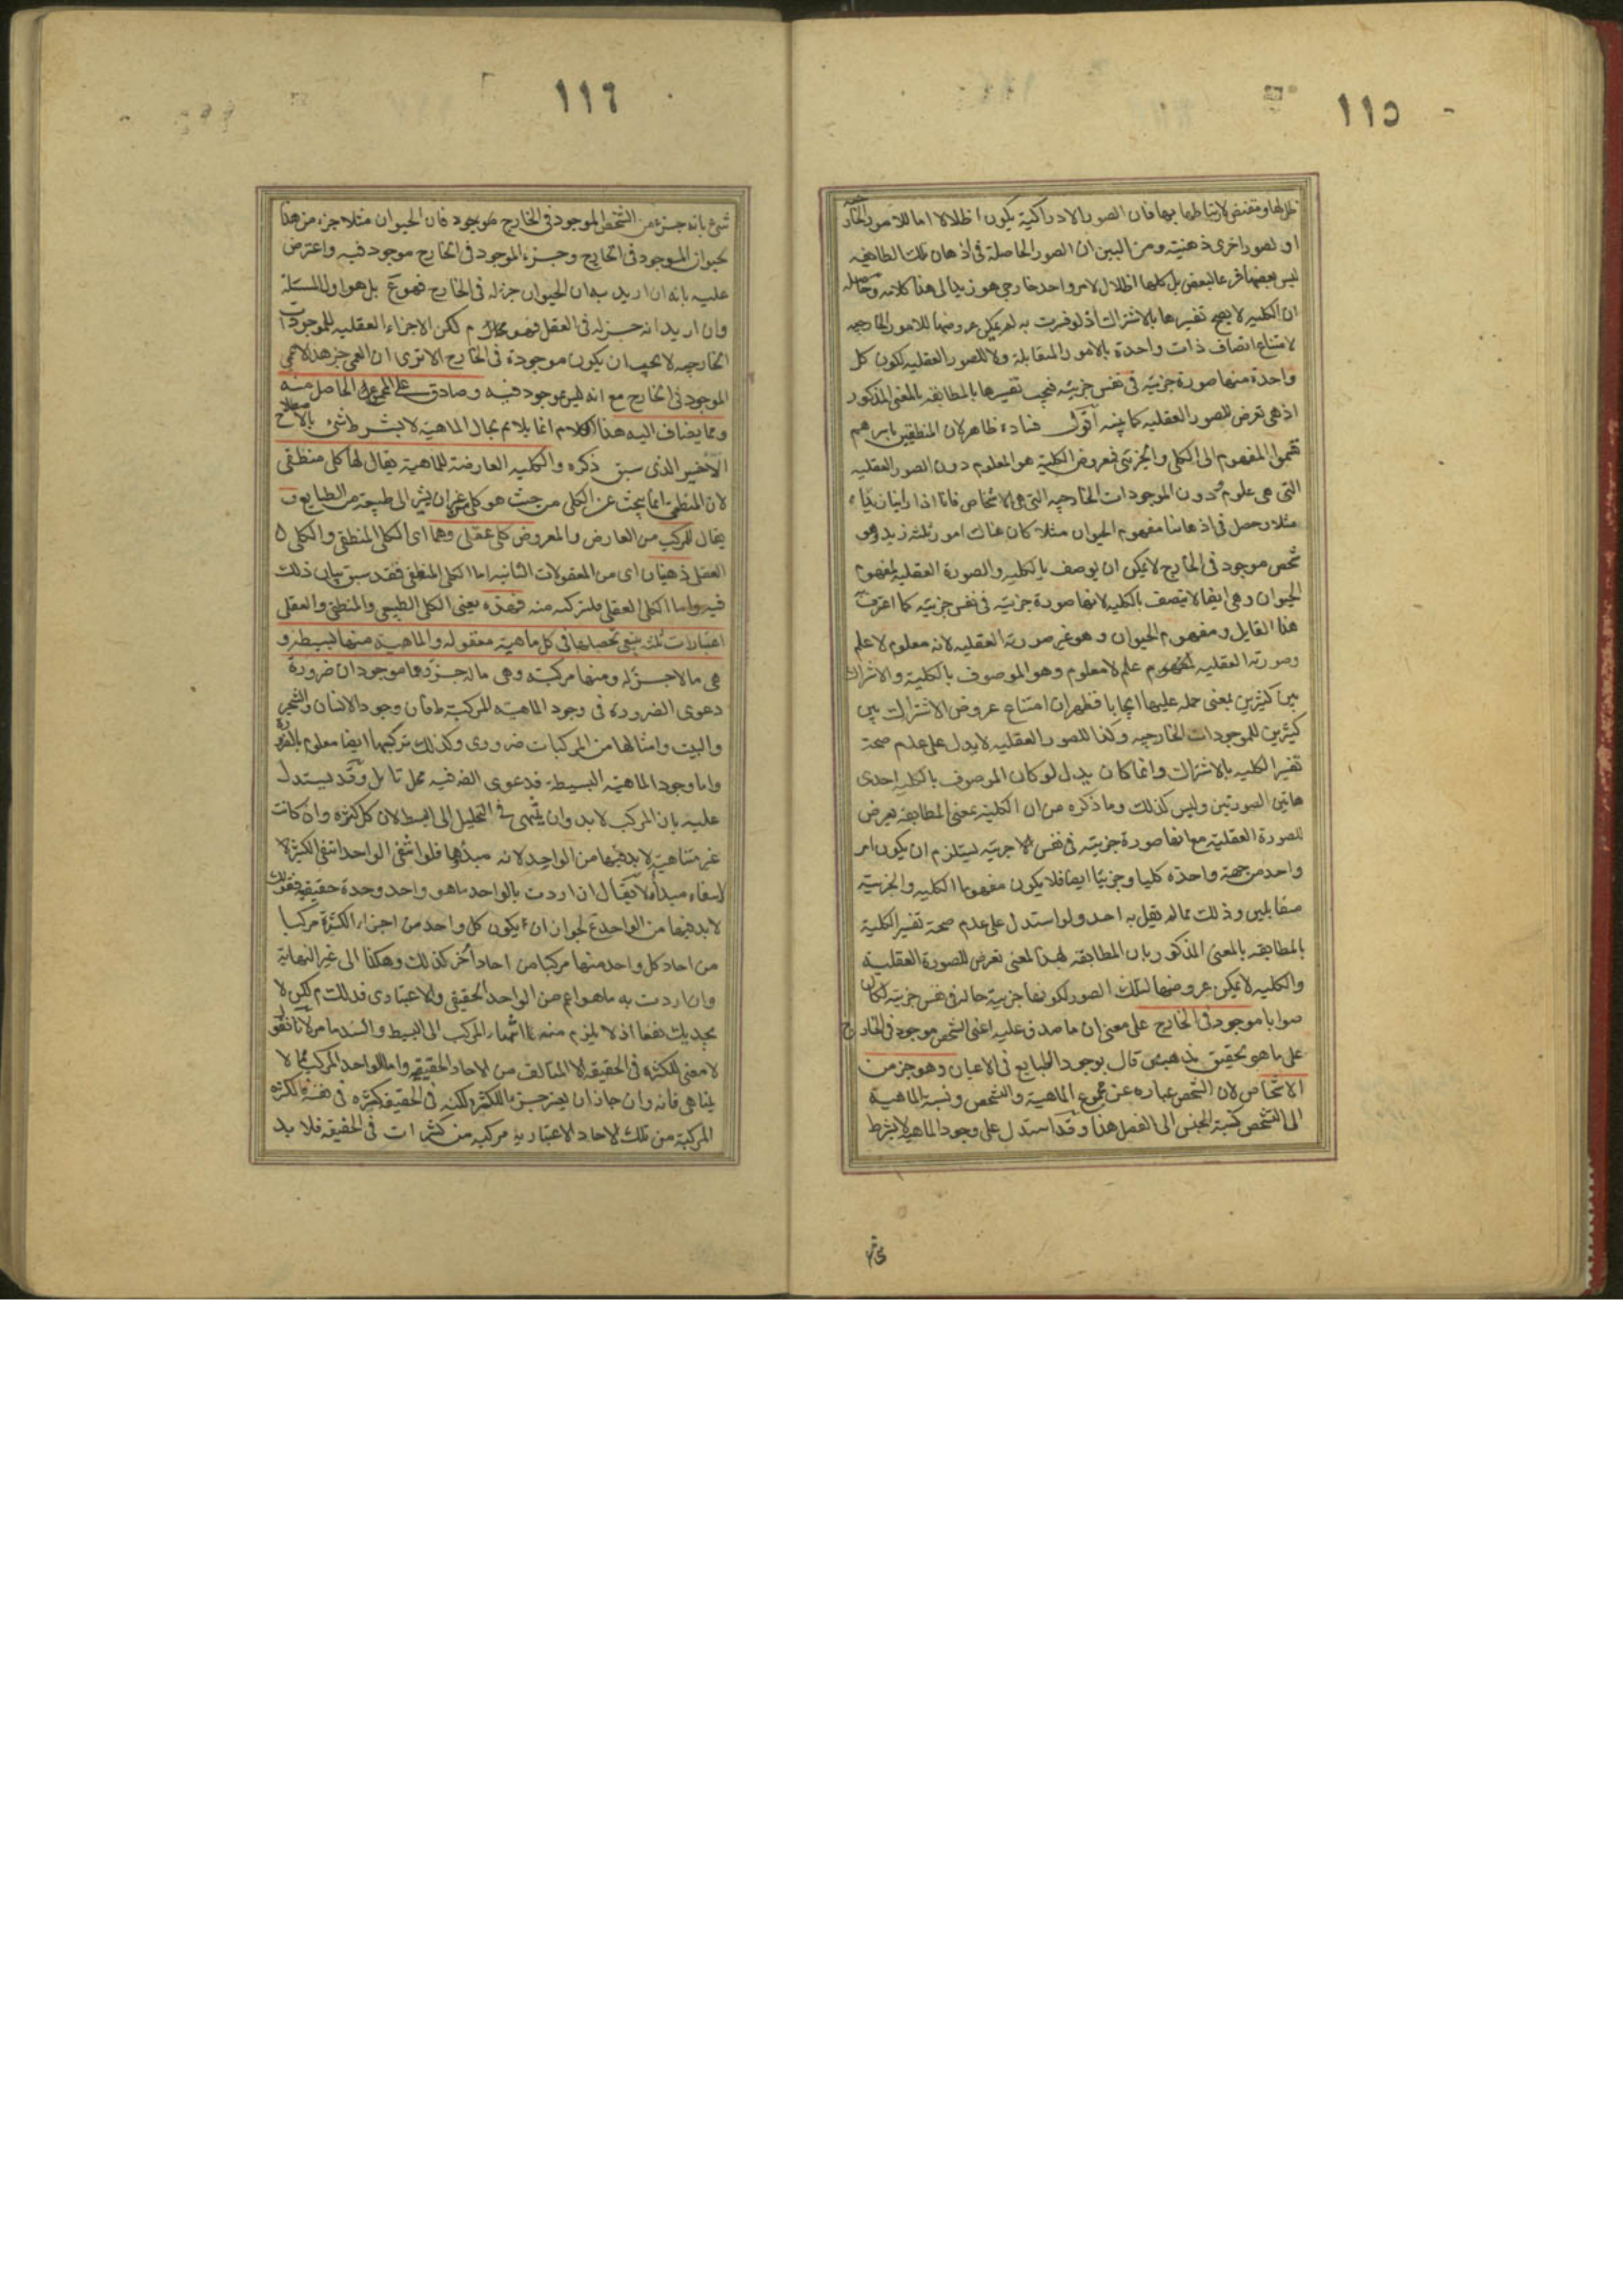 ١١٥
ظل لها ومقتض لارتباطها بها فان الصور الادراكية يكون اظلالا اما للامور الخارجية
او لصور اخرى ذهنية ومن البين ان الصور الحاصلة فى اذهان تلك الطائفه
ليس بعضها فرعا للبعض بل كلها اظلال لامر واحد خارجى هو زيد الى هنا كلامه وحاصله
ان الكليه لا يصح تفسيرها بالاشتراك اذ لو فسرت به لم يمكن عروضها للامور الخارجيه
لامتناع اتصاف ذات واحدة بالامور المتقابلة ولا للصور العقليه لكون كل
واحدة منها صورة جزئيه فى نفس جزئيه فيجب تفسيرها بالمطابقه بالمعنى المذكور
اذ هى تعرض للصور العقليه كما بينه اقول فساده ظاهر لان المنطقيين باسرهم
قسموا المفهوم الى الكلى والجزئى فمعروض الكلية هو المعلوم دون الصور العقليه
التى هى علوم ودون الموجودات الخارجيه التى هى الاشخاص فانا اذا راينا زيدا
مثلا وحصل فى اذهاننا مفهوم الحيوان مثلا كان هناك امور ثلثه زيد وهو
شخص موجود فى الخارج لا يمكن ان يوصف بالكليه والصورة العقليه لمفهوم
الحيوان وهى ايضا لا يتصف بالكليه لانها صورة جزئيه فى نفس جزئيه كما اعترف
هذا القايل ومفهوم الحيوان وهو غير صورته العقليه لانه معلوم لا علم
وصورته العقليه لمفهوم علم لا معلوم وهو الموصوف بالكلية والاشتراك
بين كثيرين بمعنى حمله عليها ايجابا فظهر ان امتناع عروض الاشتراك بين
كثيرين للموجودات الخارجيه وكذا للصور العقليه لا يدل على عدم صحة
تفسير الكليه بالاشتراك وانما كان يدل لو كان الموصوف بالكليه احدى
هاتين الصورتين وليس كذلك وما ذكره من ان الكليه بمعنى المطابقه يعرض
للصورة العقلية مع انها صورة جزئيه فى نفس جزئيه يستلزم ان يكون امر
واحد من جهة واحدة كليا وجزئيا ايضا فلا يكون مفهوما الكليه والجزئيه
متقابلين وذلك مما لم يقل به احد ولو استدل على عدم صحة تفسير الكلية
بالمطابقه بالمعنى المذكور بان المطابقه لهذا المعنى تعرض للصورة العقلية
والكليه لا يمكن عروضها لتلك الصور لكونها جزئية حاله فى نفس جزئيه لكان
صوابا موجود فى الخارج على معنى ان ما صدق عليه اعنى الشخص موجود فى الخارج
على ما هو تحقيق مذهب من قال بوجود الطبايع فى الاعيان وهو جزء من
الاشخاص لان الشخص عبارة عن مجموع الماهية والتشخص ونسبة الماهية
الى التشخص كنسبة الجنس الى الفصل هذا وقد استدل على وجود الماهيه لا بشرط
شئ
١١٦
شئ بانه جزء من الشخص الموجود فى الخارج موجود فان الحيوان مثلا جزء من هذا
الحيوان الموجود فى الخارج وجزء الموجود فى الخارج موجود فيه واعترض
عليه بانه ان اريد به ان الحيوان جزء له فى الخارج فهو ع بل هو اول المسئلة
وان اريد انه جزء له فى العقل فهو م لكن الاجزاء العقليه للموجودات
الخارجيه لا يجب ان يكون موجودة فى الخارج الا ترى ان العمى جزء هذا الاعمى
الموجود فى الخارج مع انه ليس بموجود فيه وصادق على المجموع الحاصل منه
ومما يضاف اليه هذا الكلام انما يلايم بحال الماهية لا بشرط شئ بالاصطلاح
الاخير الذى سبق ذكره والكليه العارضة للماهية يقال لها كلى منطقى
لان المنطقى انما يبحث عن الكلى من حيث هو كلى غير ان يشير الى طبيعة من الطبايع و
يقال للمركب من العارض والمعروض كلى عقلى وهما اى الكلى المنطقى والكلى
العقلى ذهنيان اى من المعقولات الثانيه اما الكلى المنطقى فقد سبق بيان ذلك
فيه واما الكلى العقلى فلتركبه منه فهذه يعنى الكلى الطبيعى والمنطقى والعقلى
اعتبارات ثلثة ينبغى تحصيلها فى كل ماهية معقوله والماهية منها بسيطة و
هى ما لا جزء له ومنها مركبة وهى ما له جزء وهما موجودان ضرورة
دعوى الضرورة فى وجود الماهية المركبة ظ فان وجود الانسان والشجر
والبيت وامثالها من المركبات ضرورى وكذلك تركبها ايضا معلوم بالضرورة
واما وجود الماهية البسيطة فدعوى الضرورة فيه محل تامل وقد يستدل
عليه بان المركب لا بد وان ينتهى فى التحليل الى البسيط لان كل كثرة وان كانت
غير متناهية لا بد فيها من الواحد لانه مبدؤها فلو انتفى الواحد انتفى الكثرة
لانتفاء مبدأها لا يقال ان اردت بالواحد ما هو واحد وحدة حقيقيه فقولك
لا بد فيها من الواحد ع لجواز ان يكون كل واحد من اجزاء الكثرة مركبا
من احاد كل واحد منها مركبا من احاد أخر كذلك وهكذا الى غير النهاية
وان اردت به ما هو اعم من الواحد الحقيقى والاعتبارى فذلك م لكن لا
يجديك نفعا اذ لا يلزم منه انتهاء المركب الى البسيط والسند ما مر لانا نقول
لا معنى للكثرة فى الحقيقه الا المتالف من الاحاد الحقيقيه واما الواحد المركب مما لا
يتناهى فانه وان جاز ان يصير جزء للكثرة لكنه فى الحقيقة كثرة فى نفسه والكثرة
المركبة من تلك الاحاد الاعتبارية مركبه من كثرات فى الحقيقه فلا بد